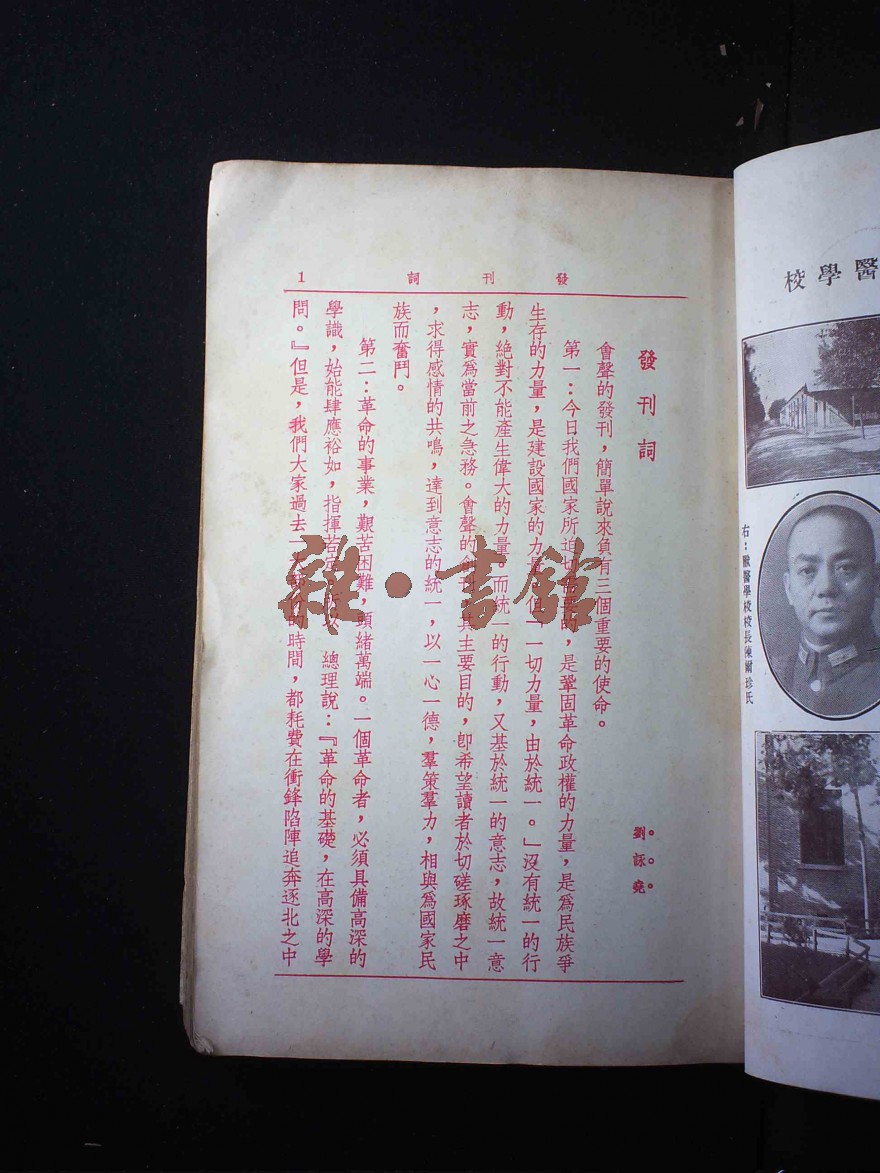 發刊詞 1
發刊詞
劉詠堯
會聲的發刊，簡單說來負有三個重要的使命。
第一：今日我們國家所迫切需要的，是鞏固革命政權的力量，是爲民族爭
生存的力量，是建設國家的力量，但「一切力量，由於統一。」沒有統一的行
動，絕對不能產生偉大的力量。而統一的行動，又基於統一的意志，故統一意
志，實爲當前之急務。會聲的創刊，其主要目的，卽希望讀者於切磋琢磨之中
，求得感情的共鳴，達到意志的統一，以一心一德，羣策羣力，相與爲國家民
族而奮鬥。
第二：革命的事業，艱苦困難，頭緒萬端。一個革命者，必須具備高深的
學識，始能肆應裕如，指揮若定，所以 總理說：『革命的基礎，在高深的學
問。』但是，我們大家過去一大部分的時間，都耗費在衝鋒陷陣追奔逐北之中
醫學校
右：獸醫學校校長陳爾珍氏
雜·書館